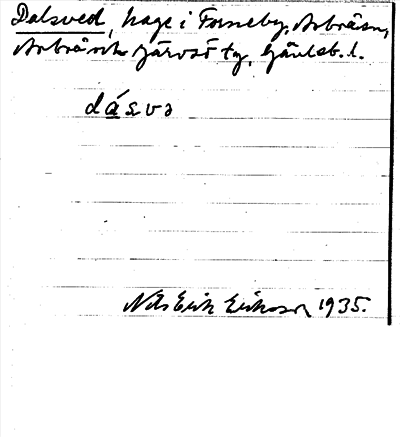 Dalsved, hage i Forneby, Arbrå sn,
Arbrå och Järvsö tg, Gävleb. l.
dásvə
Nils Erik Erikson 1935.